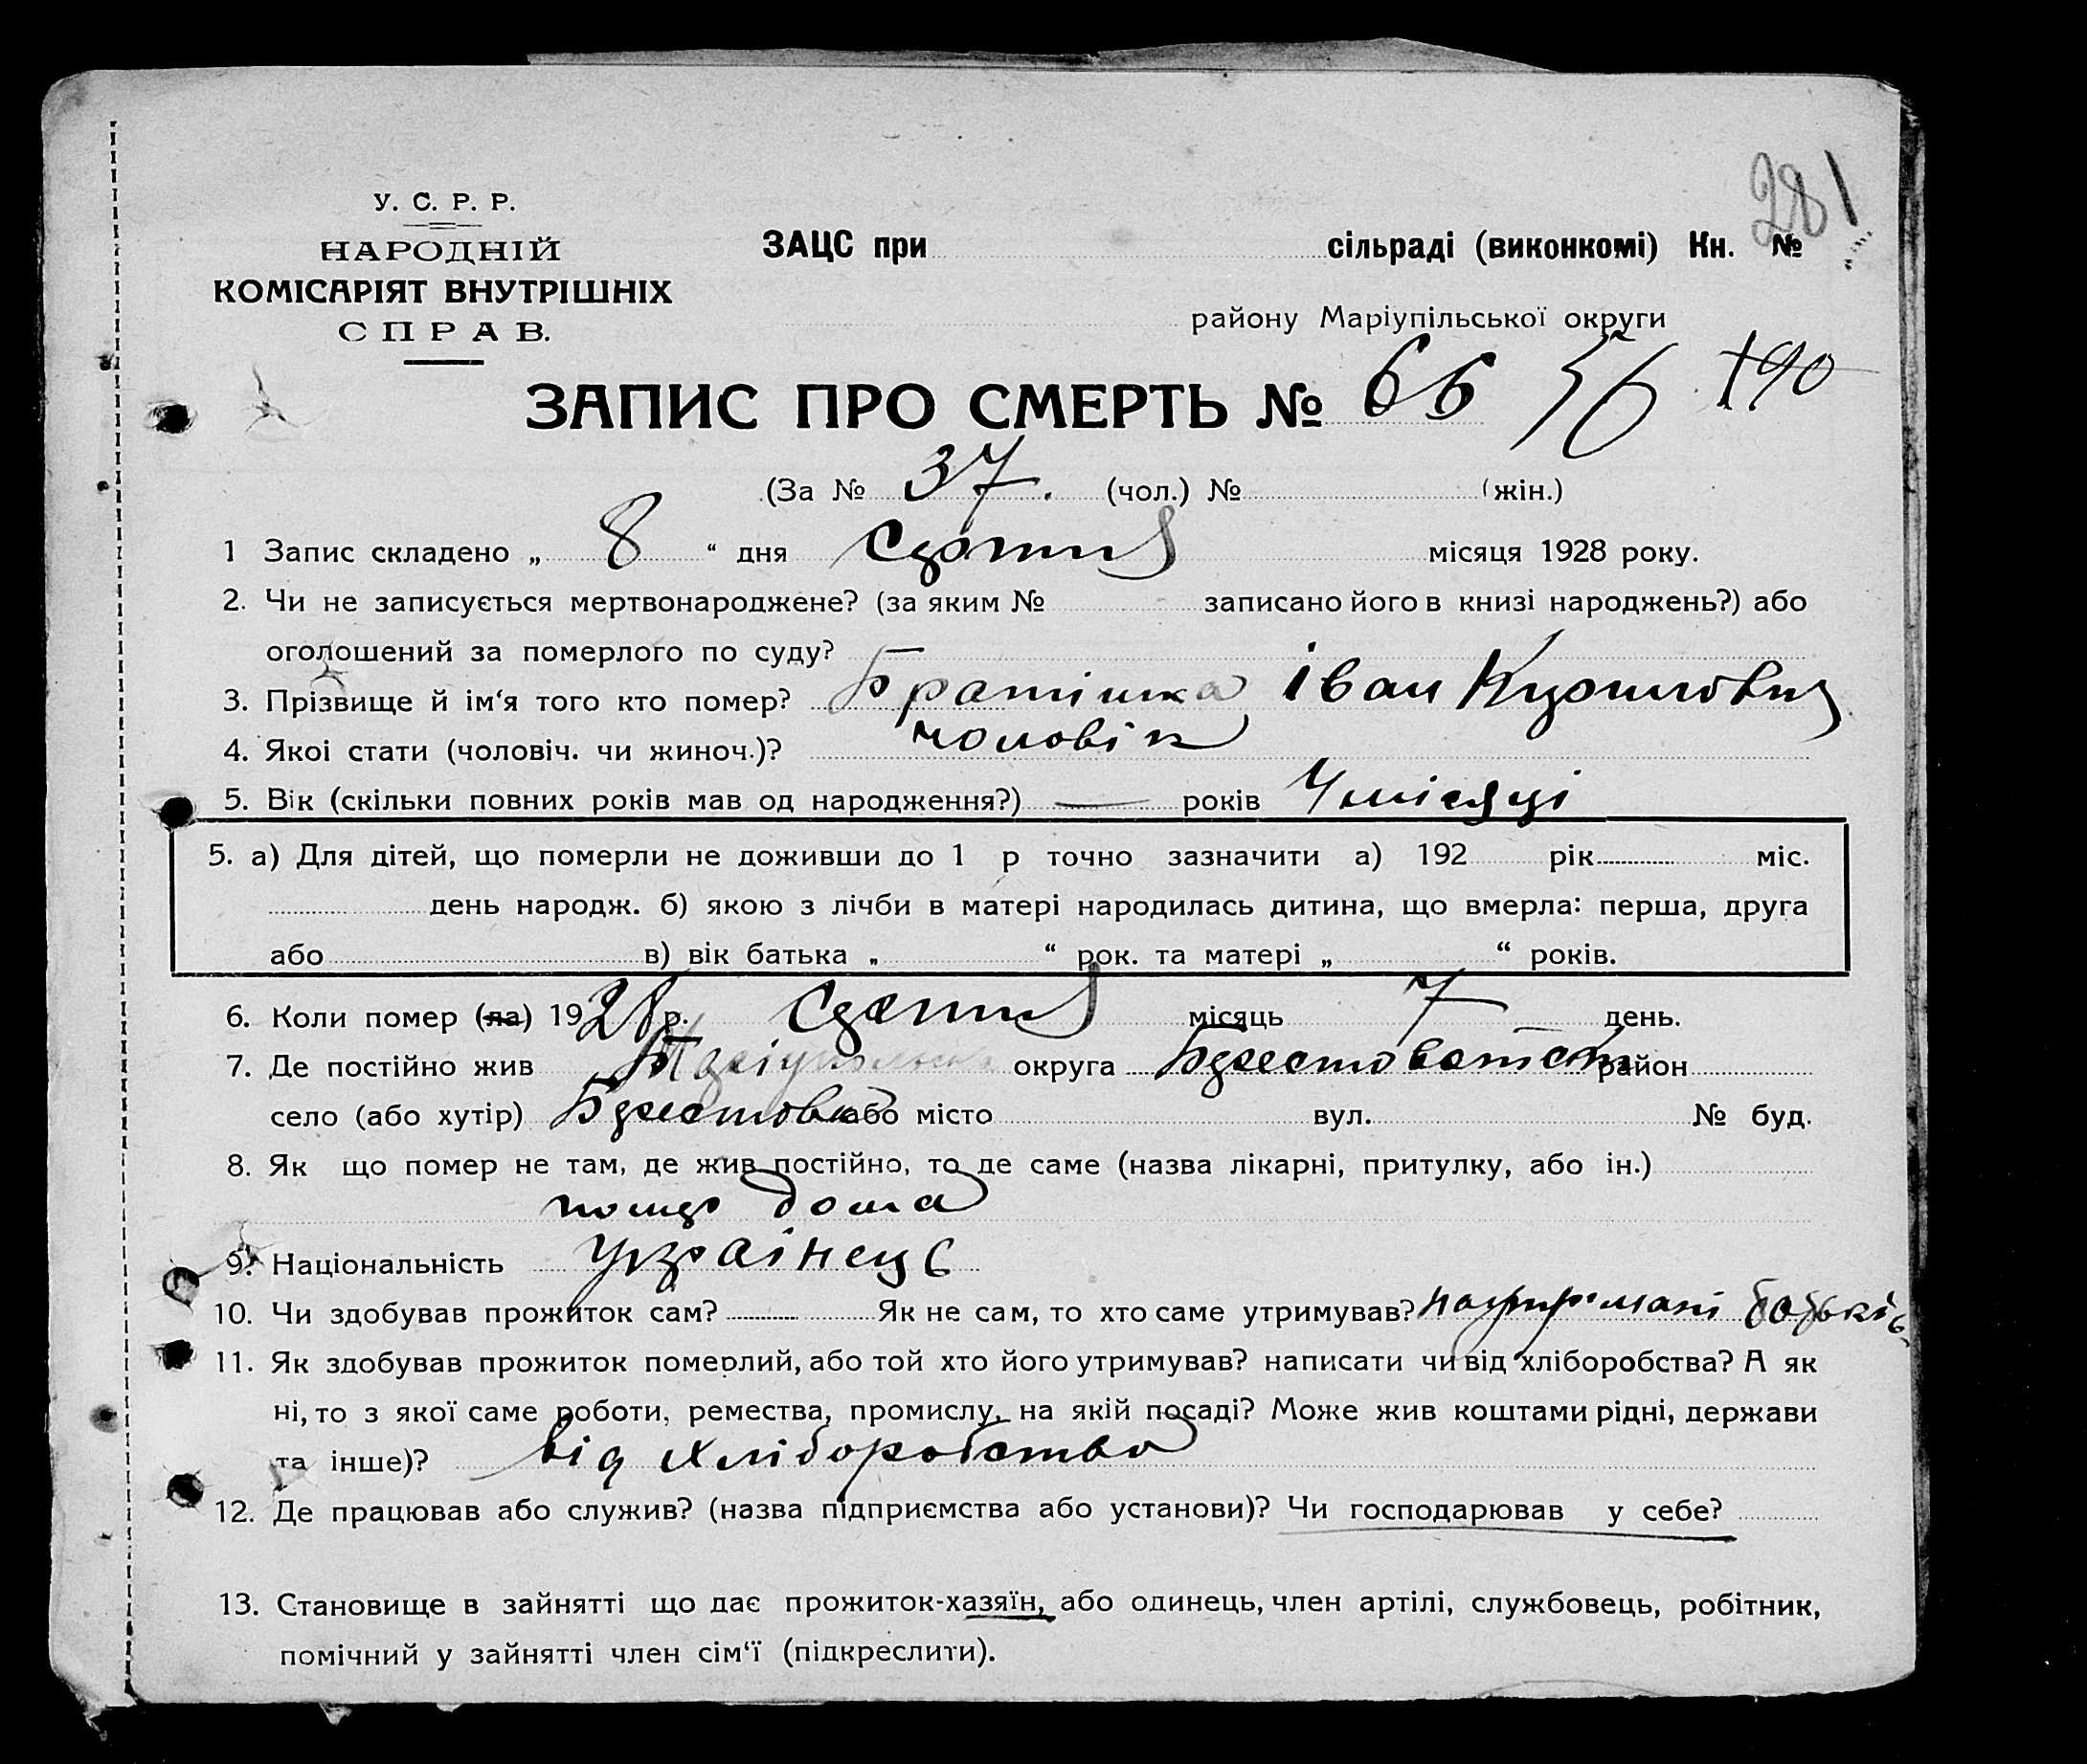 281
У. С. Р. Р.
НАРОДНІЙ
КОМІСАРІЯТ ВНУТРІШНІХ
СПРАВ.
ЗАЦС при сільраді (виконкомі) Кн. №
району Маріупільської округи
ЗАПИС ПРО СМЕРТЬ № 66 56 190
(За № 37. (чол.) № (жін.)
1 Запис складено „ 8 “ дня Сдатня місяця 1928 року.
2. Чи не записується мертвонароджене? (за яким № записано його в книзі народжень?) або
оголошений за померлого по суду?
3. Прізвище й ім‘я того кто помер? Братішка Іван
4. Якоі стати (чоловіч. чи жиноч.)? чоловік
5. Вік (скільки повних років мав од народження?) — років 4 місяці
5. а) Для дітей, що померли не доживши до 1 р точно зазначити а) 192 рік міс.
день народж. б) якою з лічби в матері народилась дитина, що вмерла: перша, друга
або в) вік батька „ “ рок. та матері „ “ років.
6. Коли помер (ла) 1928 р. Сдатня місяць 7 день.
7. Де постійно жив округа район
село (або хутір) або місто вул. № буд.
8. Як що помер не там, де жив постійно, то де саме (назва лікарні, притулку, або ін.)
дома
9. Національність українець
10. Чи здобував прожиток сам? Як не сам, то хто саме утримував? батьків
11. Як здобував прожиток померлий, або той хто його утримував? написати чи від хліборобства? А як
ні, то з якої саме роботи, ремества, промислу, на якій посаді? Може жив коштами рідні, держави
та інше)? від хліборобства
12. Де працював або служив? (назва підприємства або установи)? Чи господарював у себе?
13. Становище в зайнятті що дає прожиток-хазяїн, або одинець, член артілі, службовець, робітник,
помічний у зайнятті член сім‘ї (підкреслити).